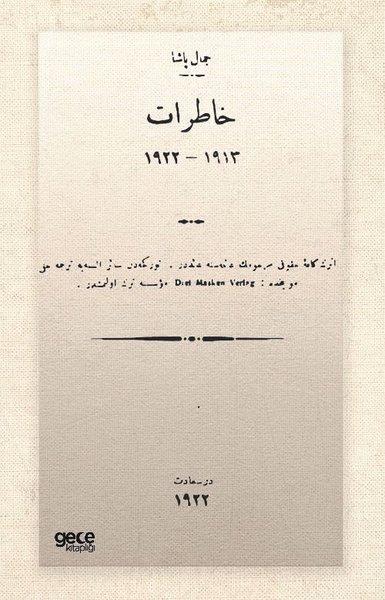 جمال پاشا
خاطرات
١٩١٣ – ١٩٢٢
اثرك كافهٔ حقوقی مرحومك عائله‌سنه عائددر . توركجه‌دن سائر السنه‌یه ترجمه حقی
مونیخده : Drei Masken Verlag مؤسسه‌سنه ترك اولنمشدر .
درسعادت
١٩٢٢
gece
kitaplığı